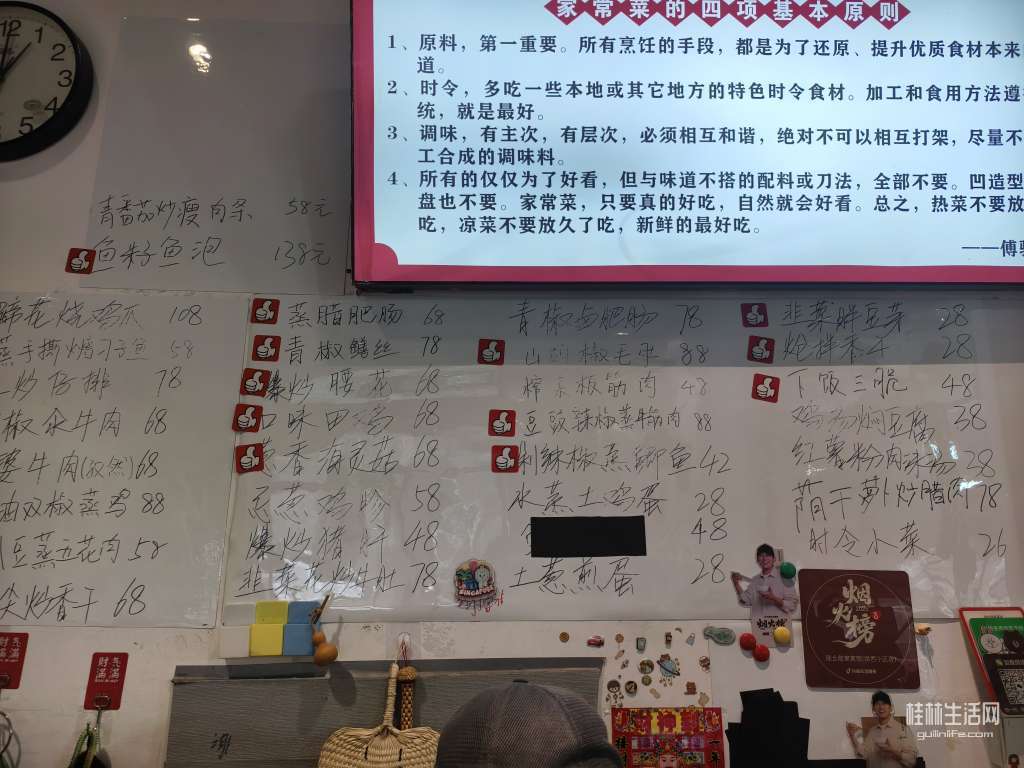 家常菜的四项基本原则
1、原料，第一重要。所有烹饪的手段，都是为了还原、提升优质食材本来
道。
2、时令，多吃一些本地或其它地方的特色时令食材。加工和食用方法遵
统，就是最好。
3、调味，有主次，有层次，必须相互和谐，绝对不可以相互打架，尽量不
工合成的调味料。
4、所有的仅仅为了好看，但与味道不搭的配料或刀法，全部不要。凹造型
盘也不要。家常菜，只要真的好吃，自然就会好看。总之，热菜不要放
吃，凉菜不要放久了吃，新鲜的最好吃。
——傅
12 1 2 3 4 5
青番茄炒瘦肉条 58元
鱼籽鱼泡 138元
花烧鸡爪 108
蒸手撕 58
炒仔排 78
椒汆牛肉 68
牛肉(孜然) 68
油双椒蒸鸡 88
豆蒸五花肉 58
尖炒香干 68
蒸腊肥肠 68
青椒鳝丝 78
爆炒腰花 68
口味田鸡 68
葱香海贡菇 68
忘葱鸡胗 58
爆炒猪肝 48
韭菜花炒牛肚 78
青椒卤肥肠 78
山胡椒毛 88
筋肉 48
豆豉辣椒蒸筋肉 88
剁辣椒蒸鲫鱼 42
水蒸土鸡蛋 28
48
土葱煎蛋 28
韭菜拌豆芽 28
炝拌香干 28
下饭三脆 48
鸡汤焖豆腐 38
红薯粉肉沫汤 28
萌干萝卜炒腊肉 78
时令小菜 26
SINGAPORE
烟火榜
2025
烟火榜
财气满满
财气满满
桂林生活网
guilinlife.com